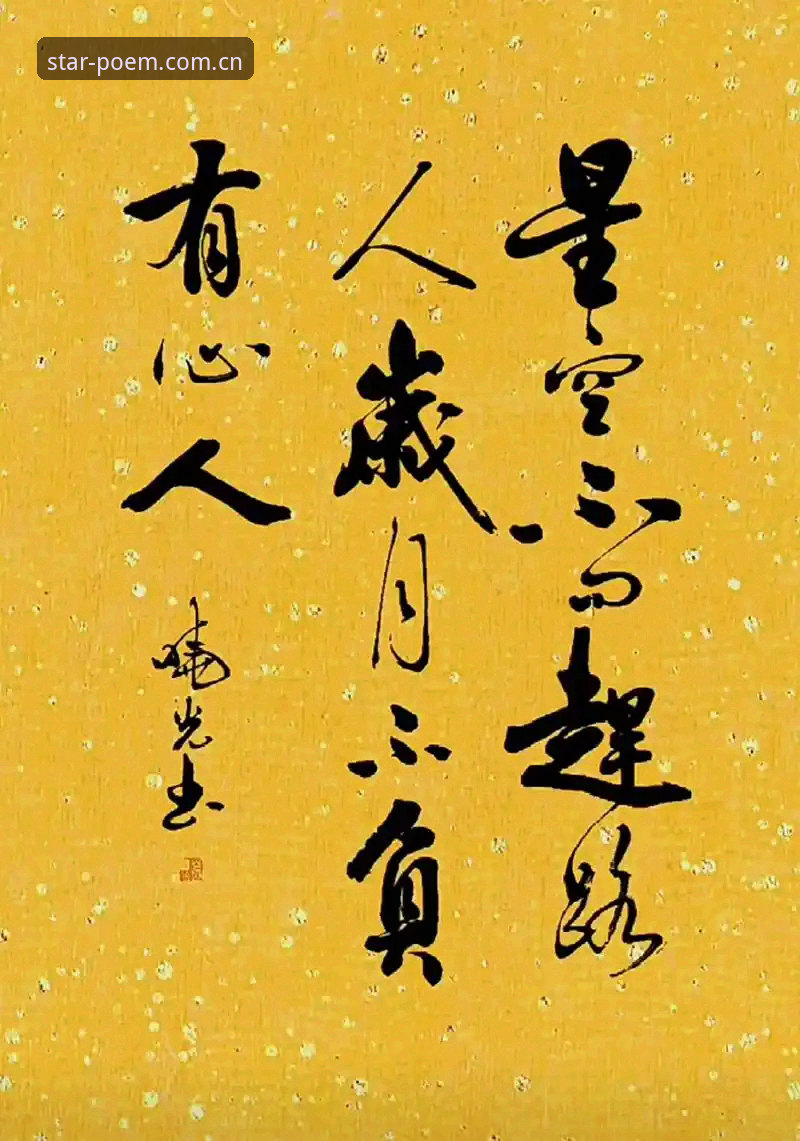 star-poem.com.cn
星空不问趕路
人歲月不負
有心人
曉光书